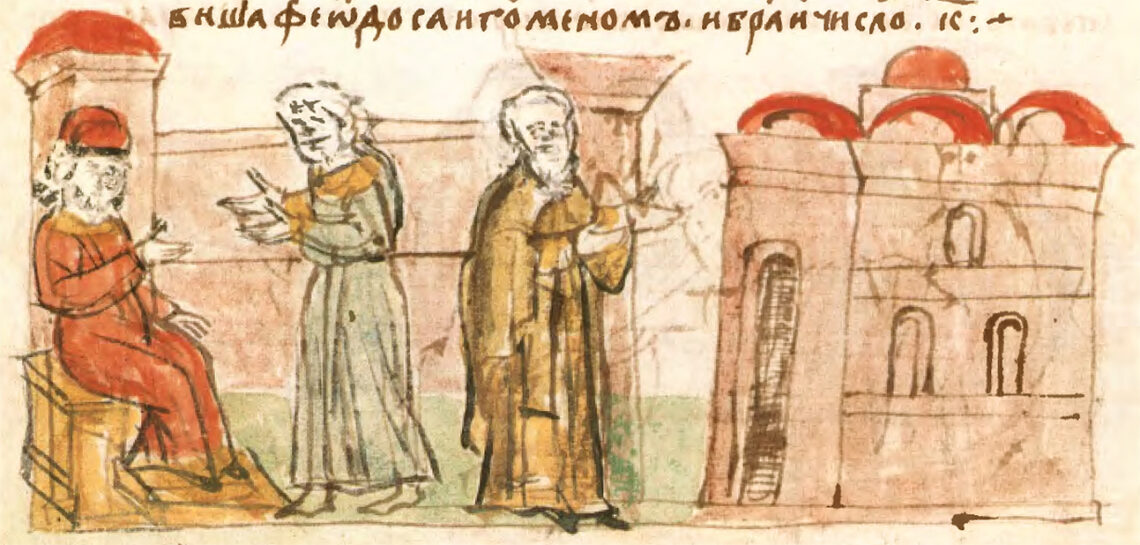 бишафеѡдосаигоменомъ.ибраич̾исло.к҃:~